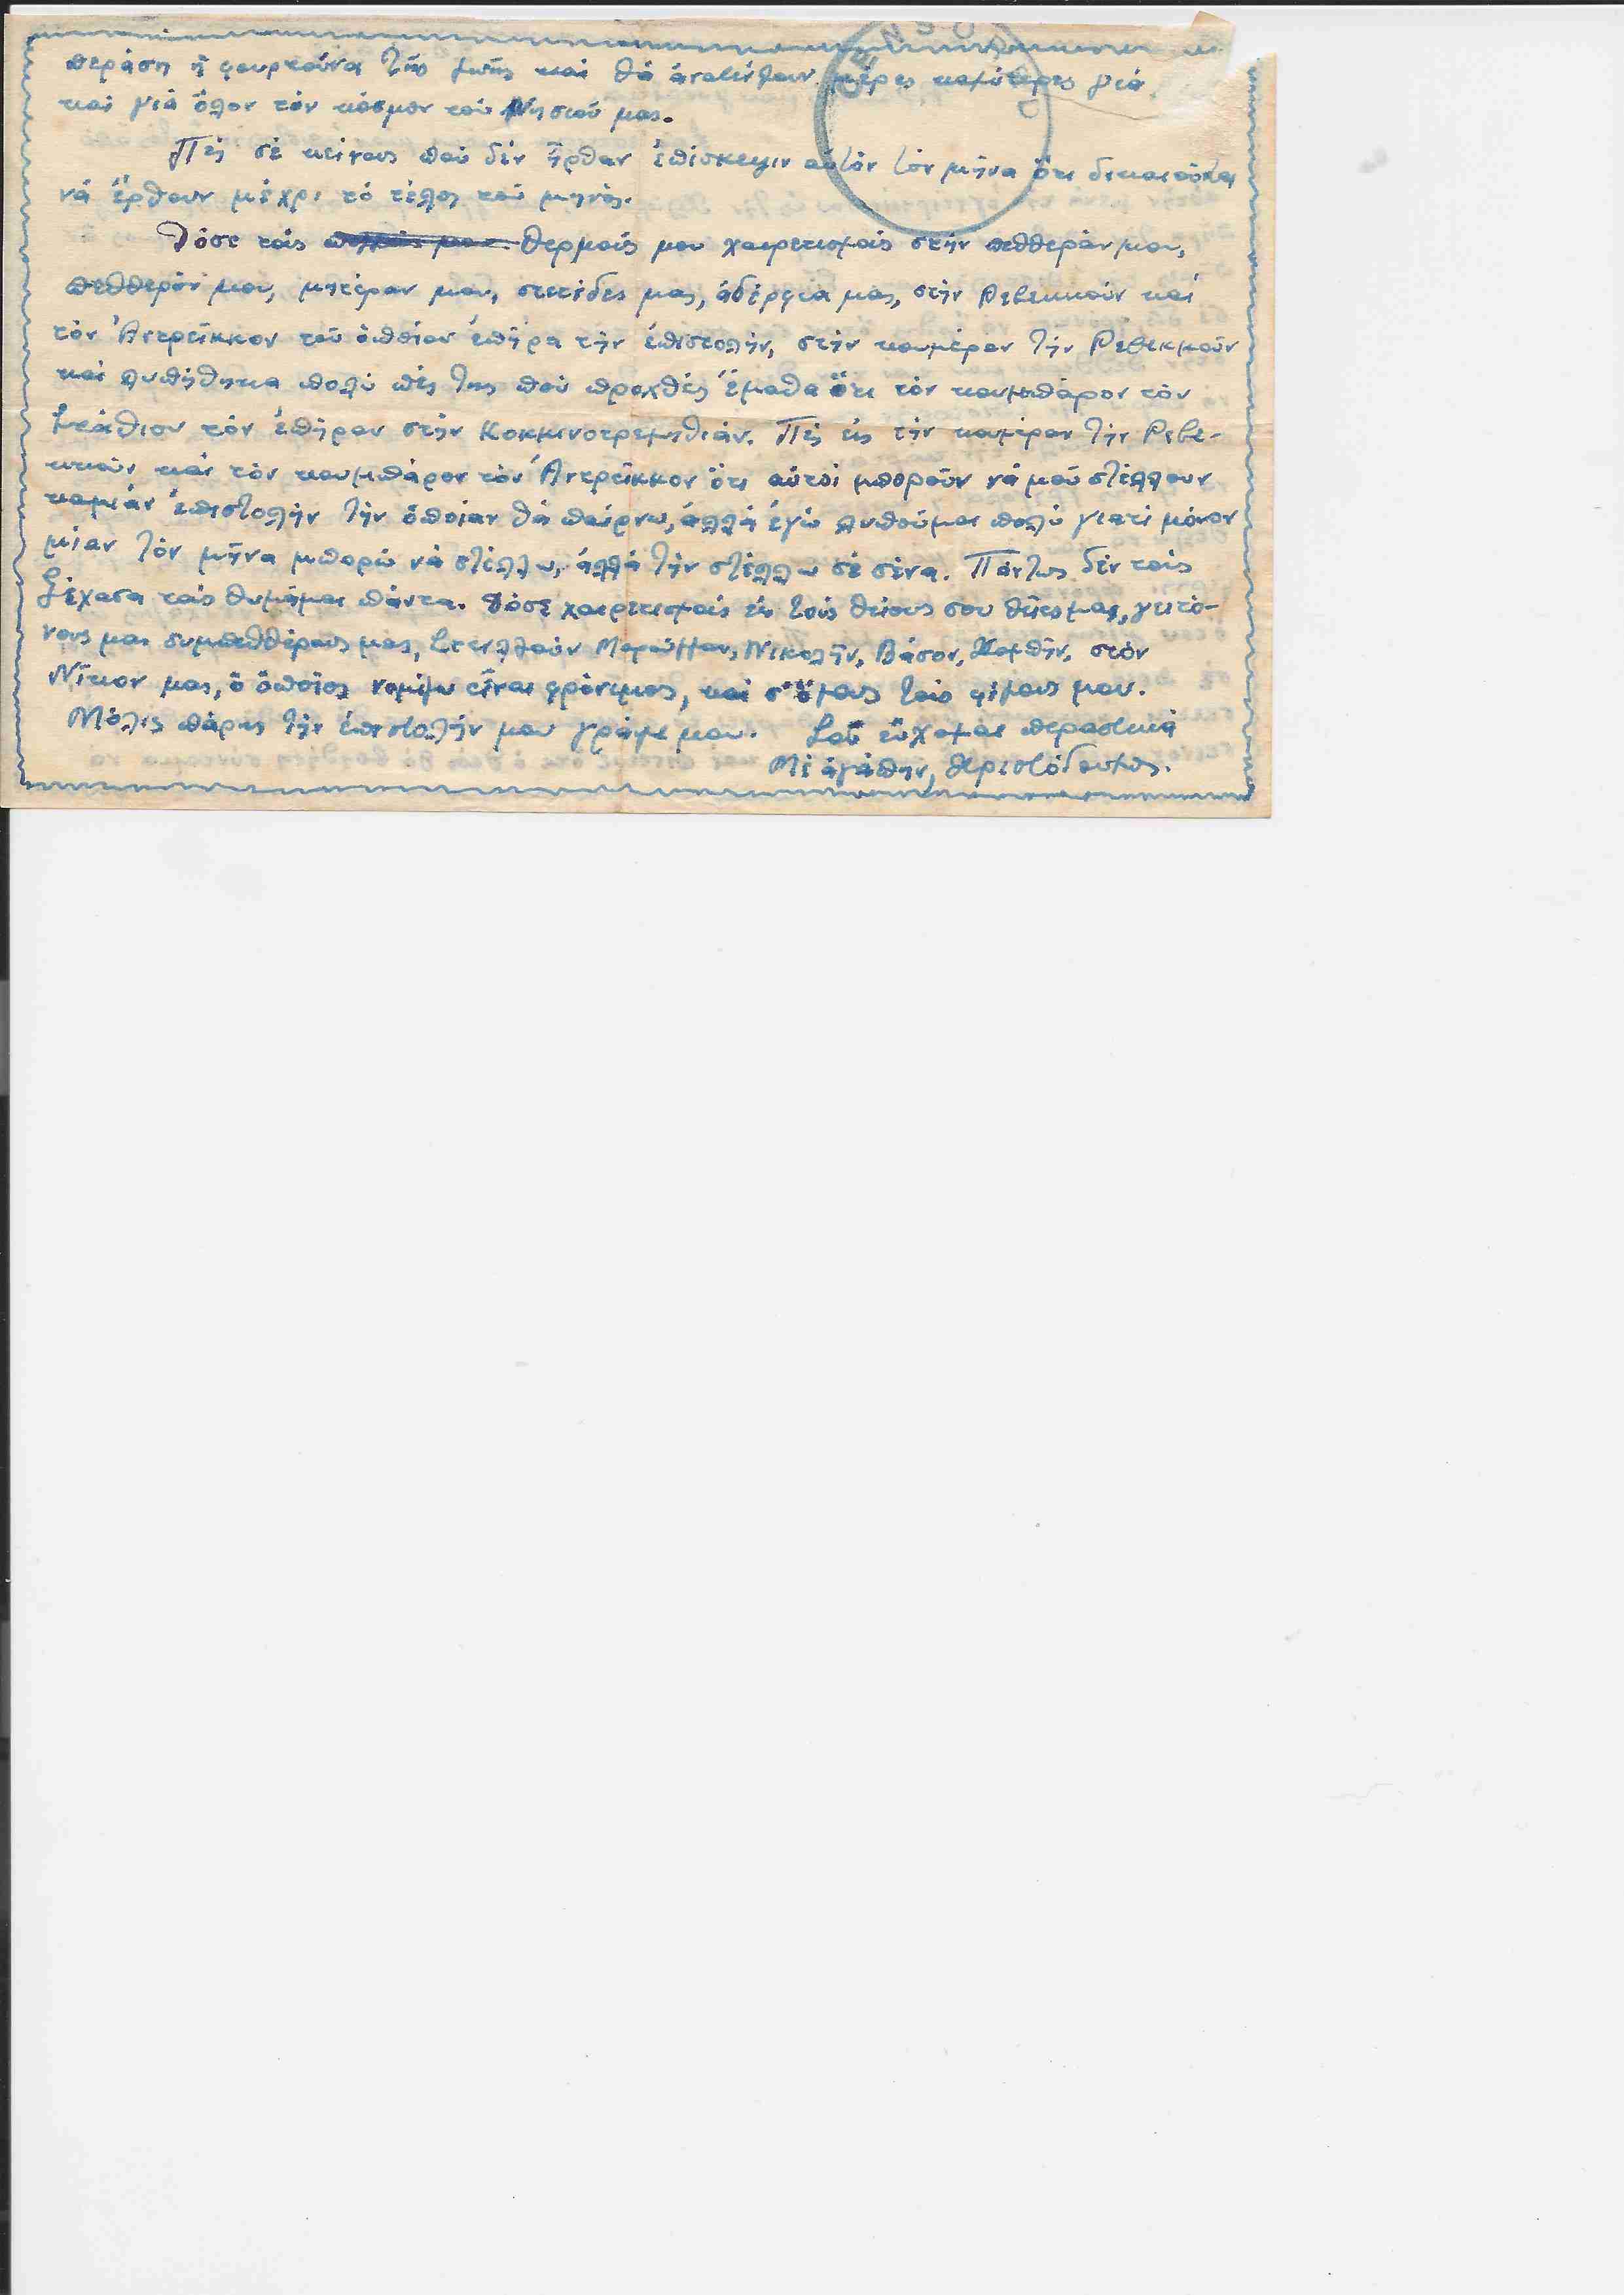 CENSOR
περάση ἡ φουρτούνα τῆς ζωῆς καί θά ἀνατείλουν μέρες καλύτερες γιά
καί γιά ὅλον τόν κόσμον τοῦ Νησιοῦ μας.
Πές σέ κείνους πού δέν ἦρθαν ἐπίσκεψιν αὐτόν τόν μῆνα ὅτι δικαιοῦνται
νά ἔρθουν μέχρι τό τέλος τοῦ μηνός.
Δόσε τούς θερμούς μου χαιρετισμούς στήν πεθθεράν μου,
πεθθερόν μου, μητέραν μου, στετέδες μας, ἀδέρφια μας, στήν Ρεβεκκούν καί
τόν Ἀντρεῖκκον τοῦ ὁποίου ἐπῆρα τήν ἐπιστολήν, στήν κουμέραν τήν Ρεβεκκούν
καί λυπήθηκα πολύ πές της πού προχθές ἔμαθα ὅτι τόν κουμπάρον τόν
Στάθιον τόν ἐπῆραν στήν Κοκκινοτρεμιθιάν. Πές εἰς τήν κουμέραν τήν Ρεβε-
κκούν καί τόν κουμπάρον τόν Ἀντρεῖκκον ὅτι αὐτοί μποροῦν νά μοῦ στέλλουν
καμιάν ἐπιστολήν τήν ὁποίαν θά παίρνω, ἀλλά ἐγώ λυποῦμαι πολύ γιατί μόνον
μίαν τόν μῆνα μπορῶ νά στέλλω, ἀλλά τήν στέλλω σέ σένα. Πάντως δέν τούς
ξέχασα τούς θυμᾶμαι πάντα. Δόσε χαιρετισμούς εἰς τούς θείους σου θεῖες μας, γειτό-
νους μας συμπεθθέρους μας, Στελλούν Μαρούλλαν, Νικολῆν, Βάσον, στόν
Νῖκον μας, ὁ ὁποῖος νομίζω εἶναι φρόνιμος, καί σ' ὅλους τούς φίλους μου.
Μόλις πάρης τήν ἐπιστολήν μου γράψε μου. Σοῦ εὔχομαι περαστικά
Μέ ἀγάπην, Χριστόδουλος.